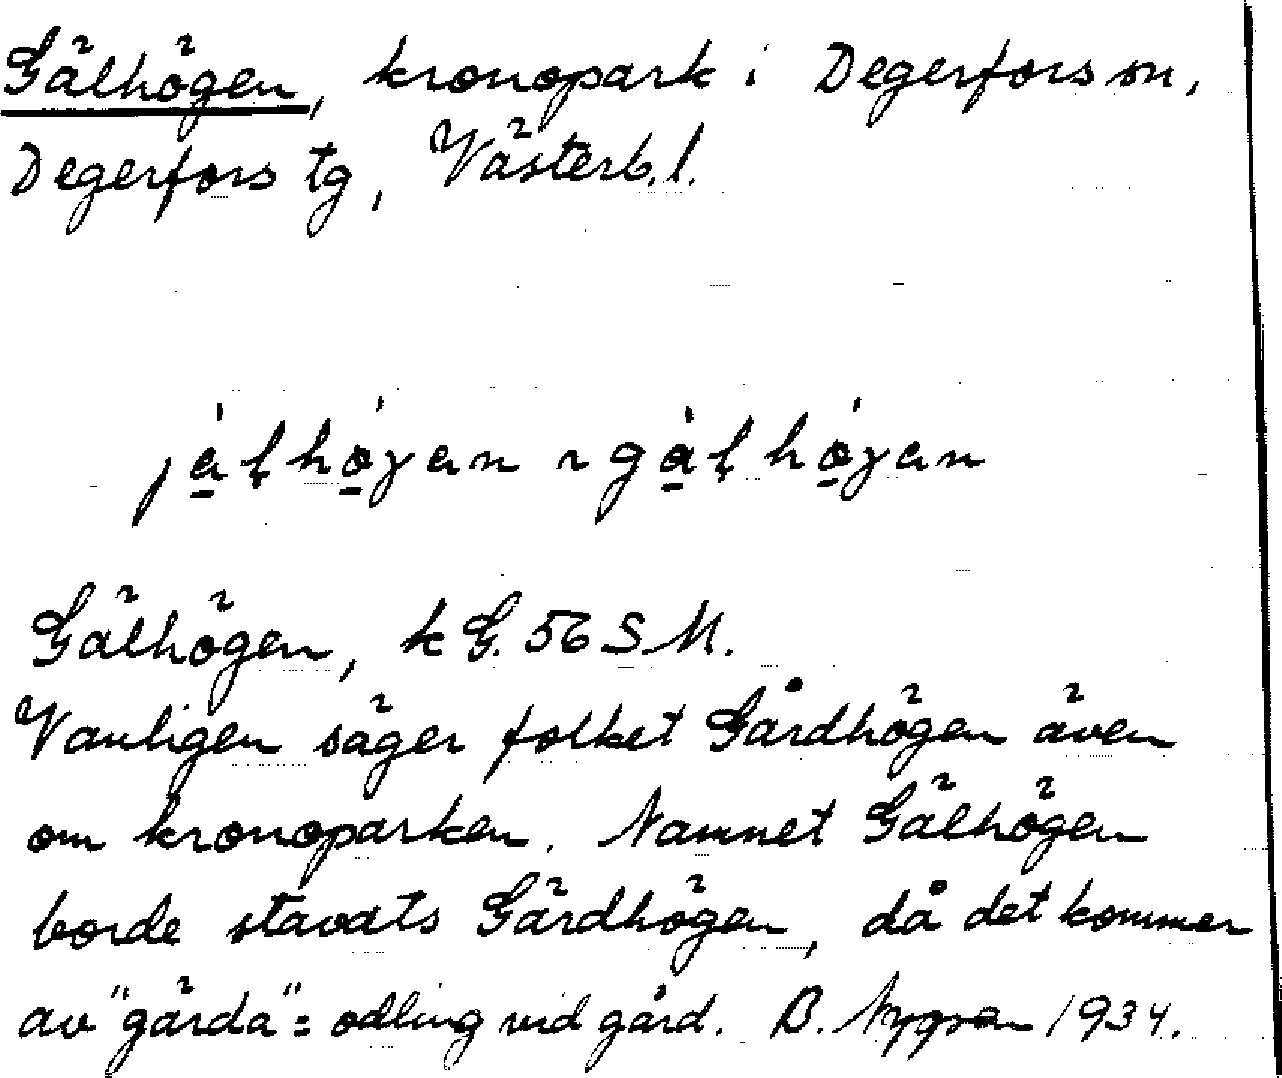 Gälhögen, kronopark i Degerfors sn,
Degerfors tg, Västerb. l.
jälhöγan ~ gålhöγan
Gälhögen, k G. 56 S M.
Vanligen säger folket Gårdhögen även
om kronoparken. Namnet Gälhögen
borde stavats Gärdhögen, då det kommer
av "gärda" = odling vid gård. B. 1934.